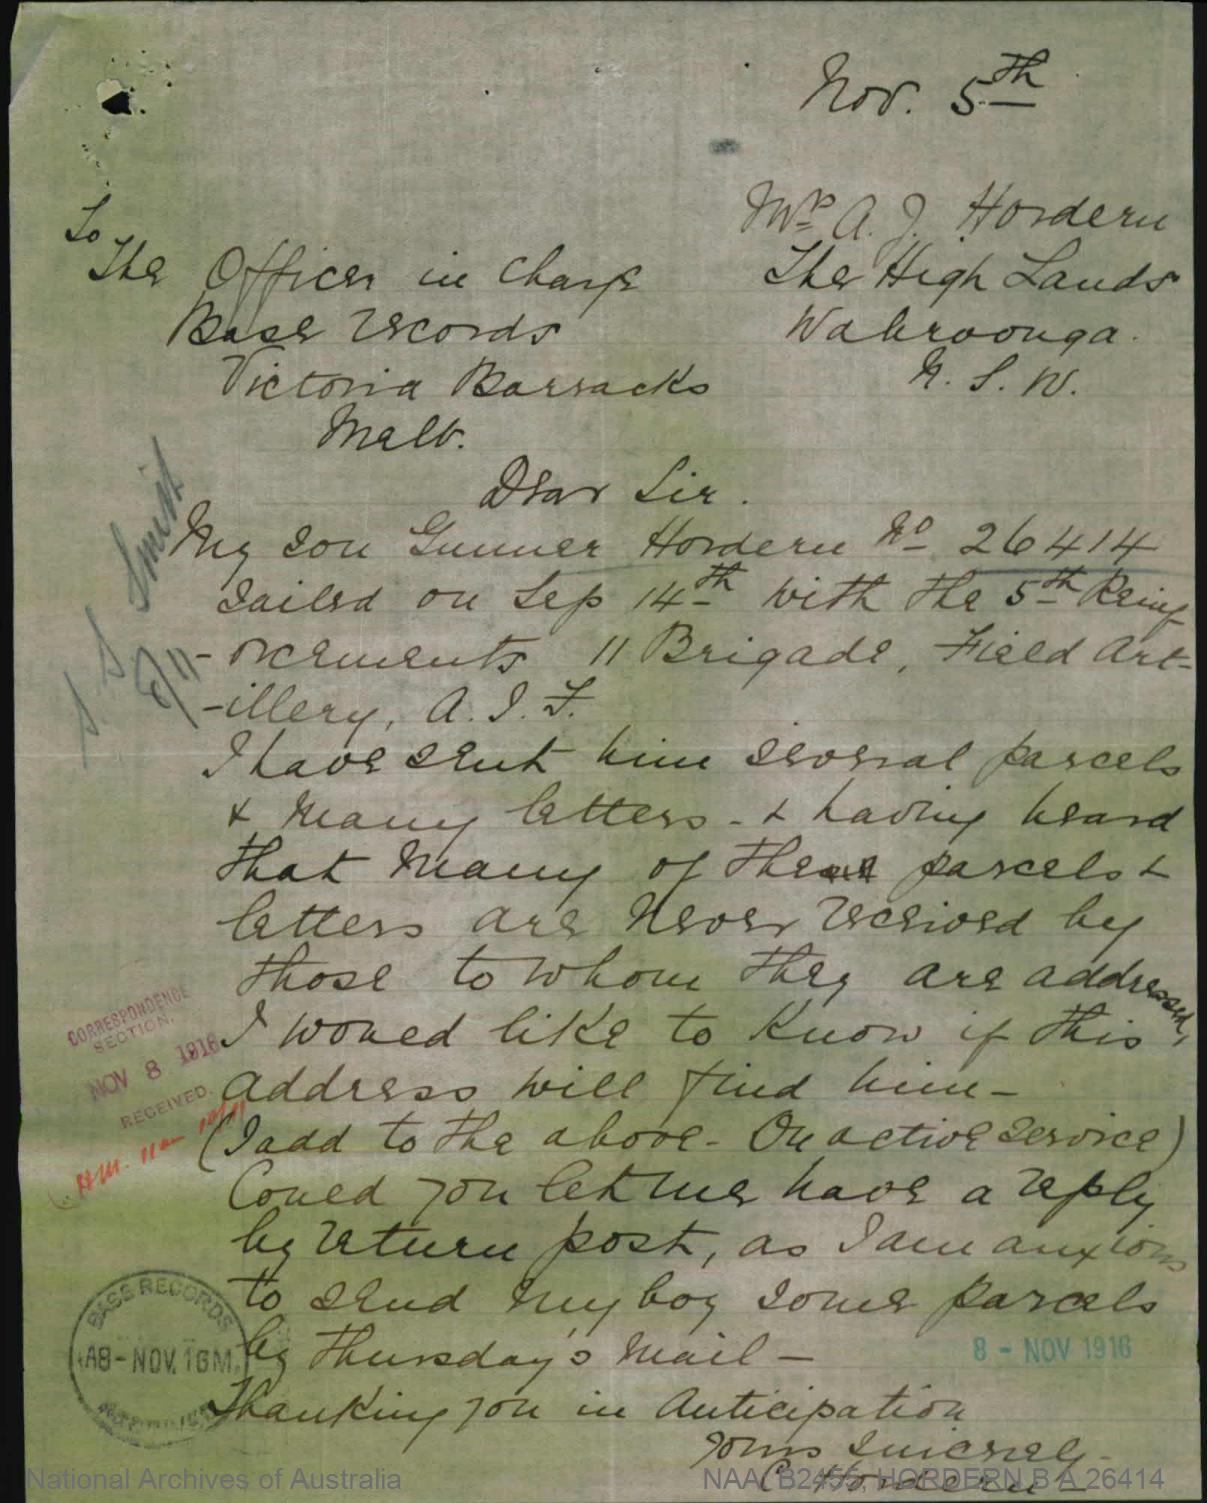 Nov. 5th
Mrs A. J. Hordern
The High Lands
Wahroonga.
N. S. W.
To
The Officer in Charge
Base records
Victoria Barracks
Melb.
Dear Sir.
My son Gunner Hordern No 26414
sailed on Sep 14th with the 5th Reinf
-orcements 11 Brigade, Field Art-
-illery, A. I. F.
I have sent him several parcels
& many letters - & having heard
that many of these parcels &
letters are never received by
those to whom they are addressed,
I would like to know if this
address will find him -
(I add to the above - On active service)
Could you let me have a reply
by return post, as I am anxious
to send my boy some parcels
by Thursday's mail -
Thanking you in Anticipation
Yours Sincerely
C Hordern
S. S. Smith
8/11
CORRESPONDENCE
SECTION.
NOV 8 1916
RECEIVED.
BASE RECORDS
A8-NOV.16M.
8 - NOV 1916
National Archives of Australia
NAA: B2455, HORDERN B A 26414